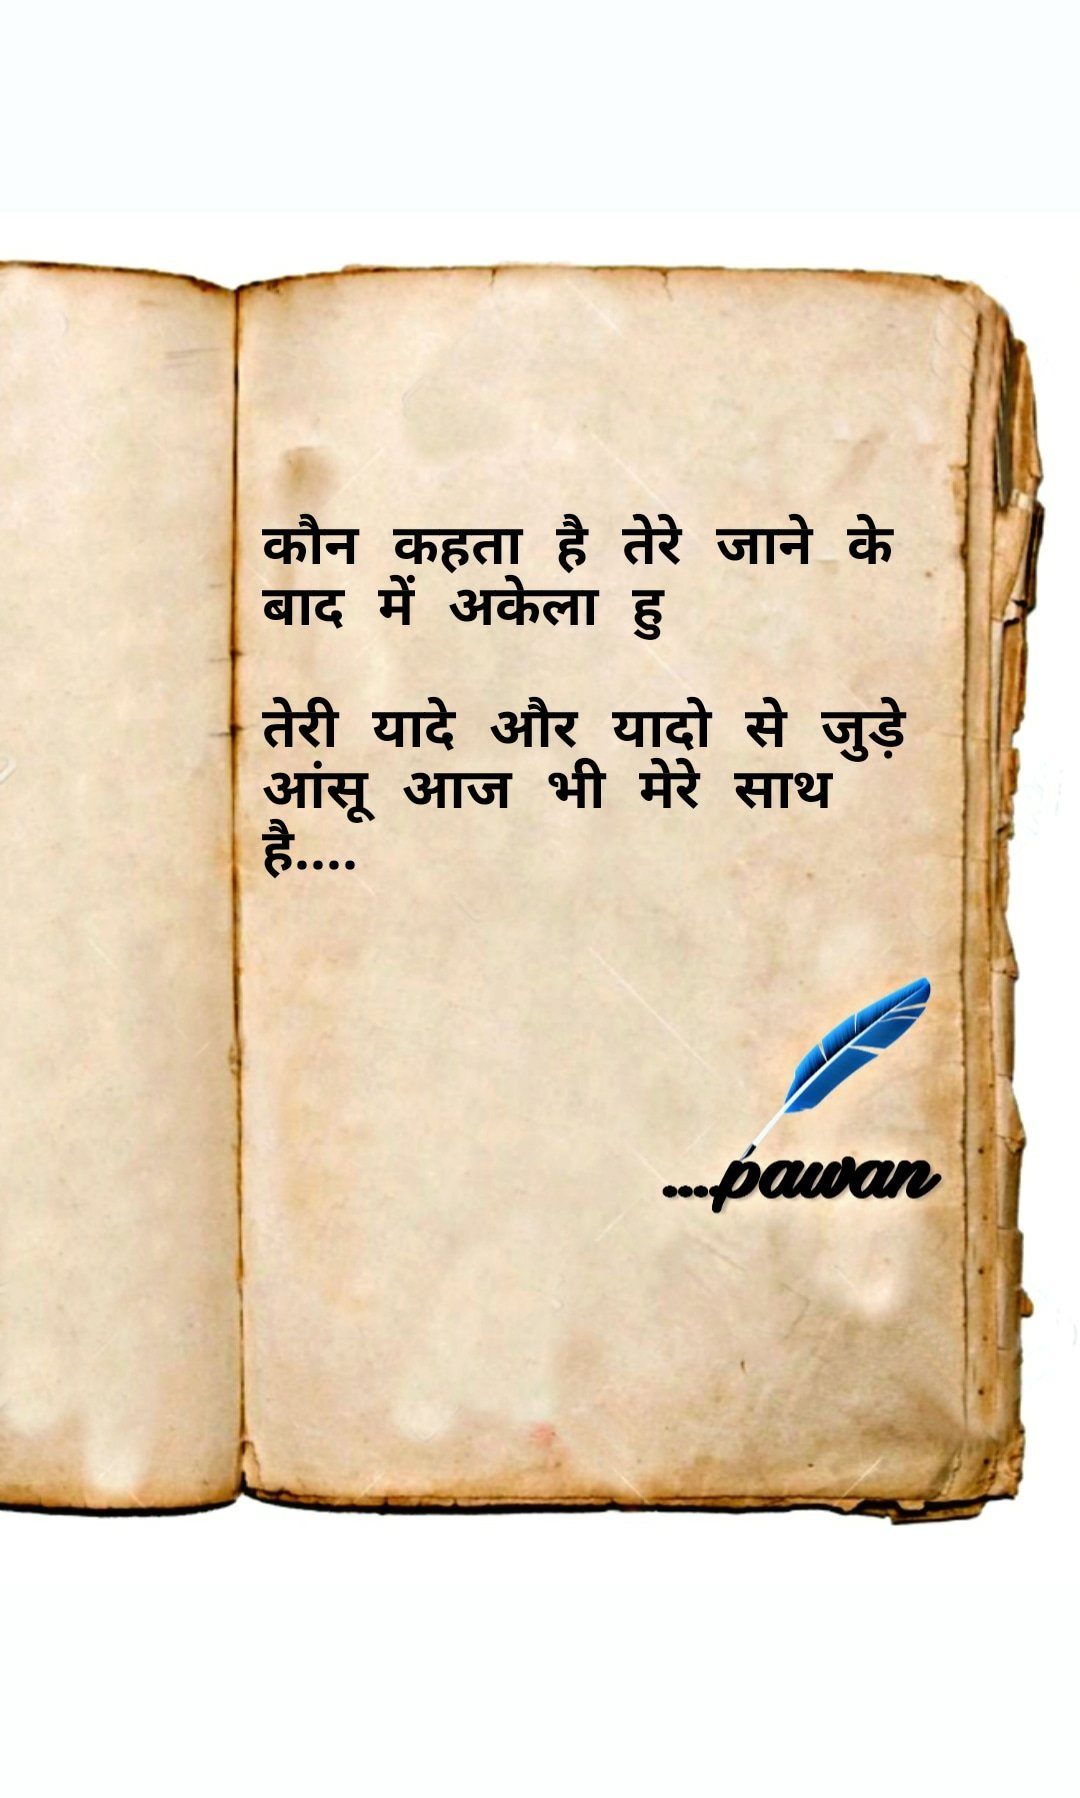 कौन कहता है तेरे जाने के
बाद में अकेला हु
तेरी यादे और यादो से जुड़े
आंसू आज भी मेरे साथ
है....
....pawan